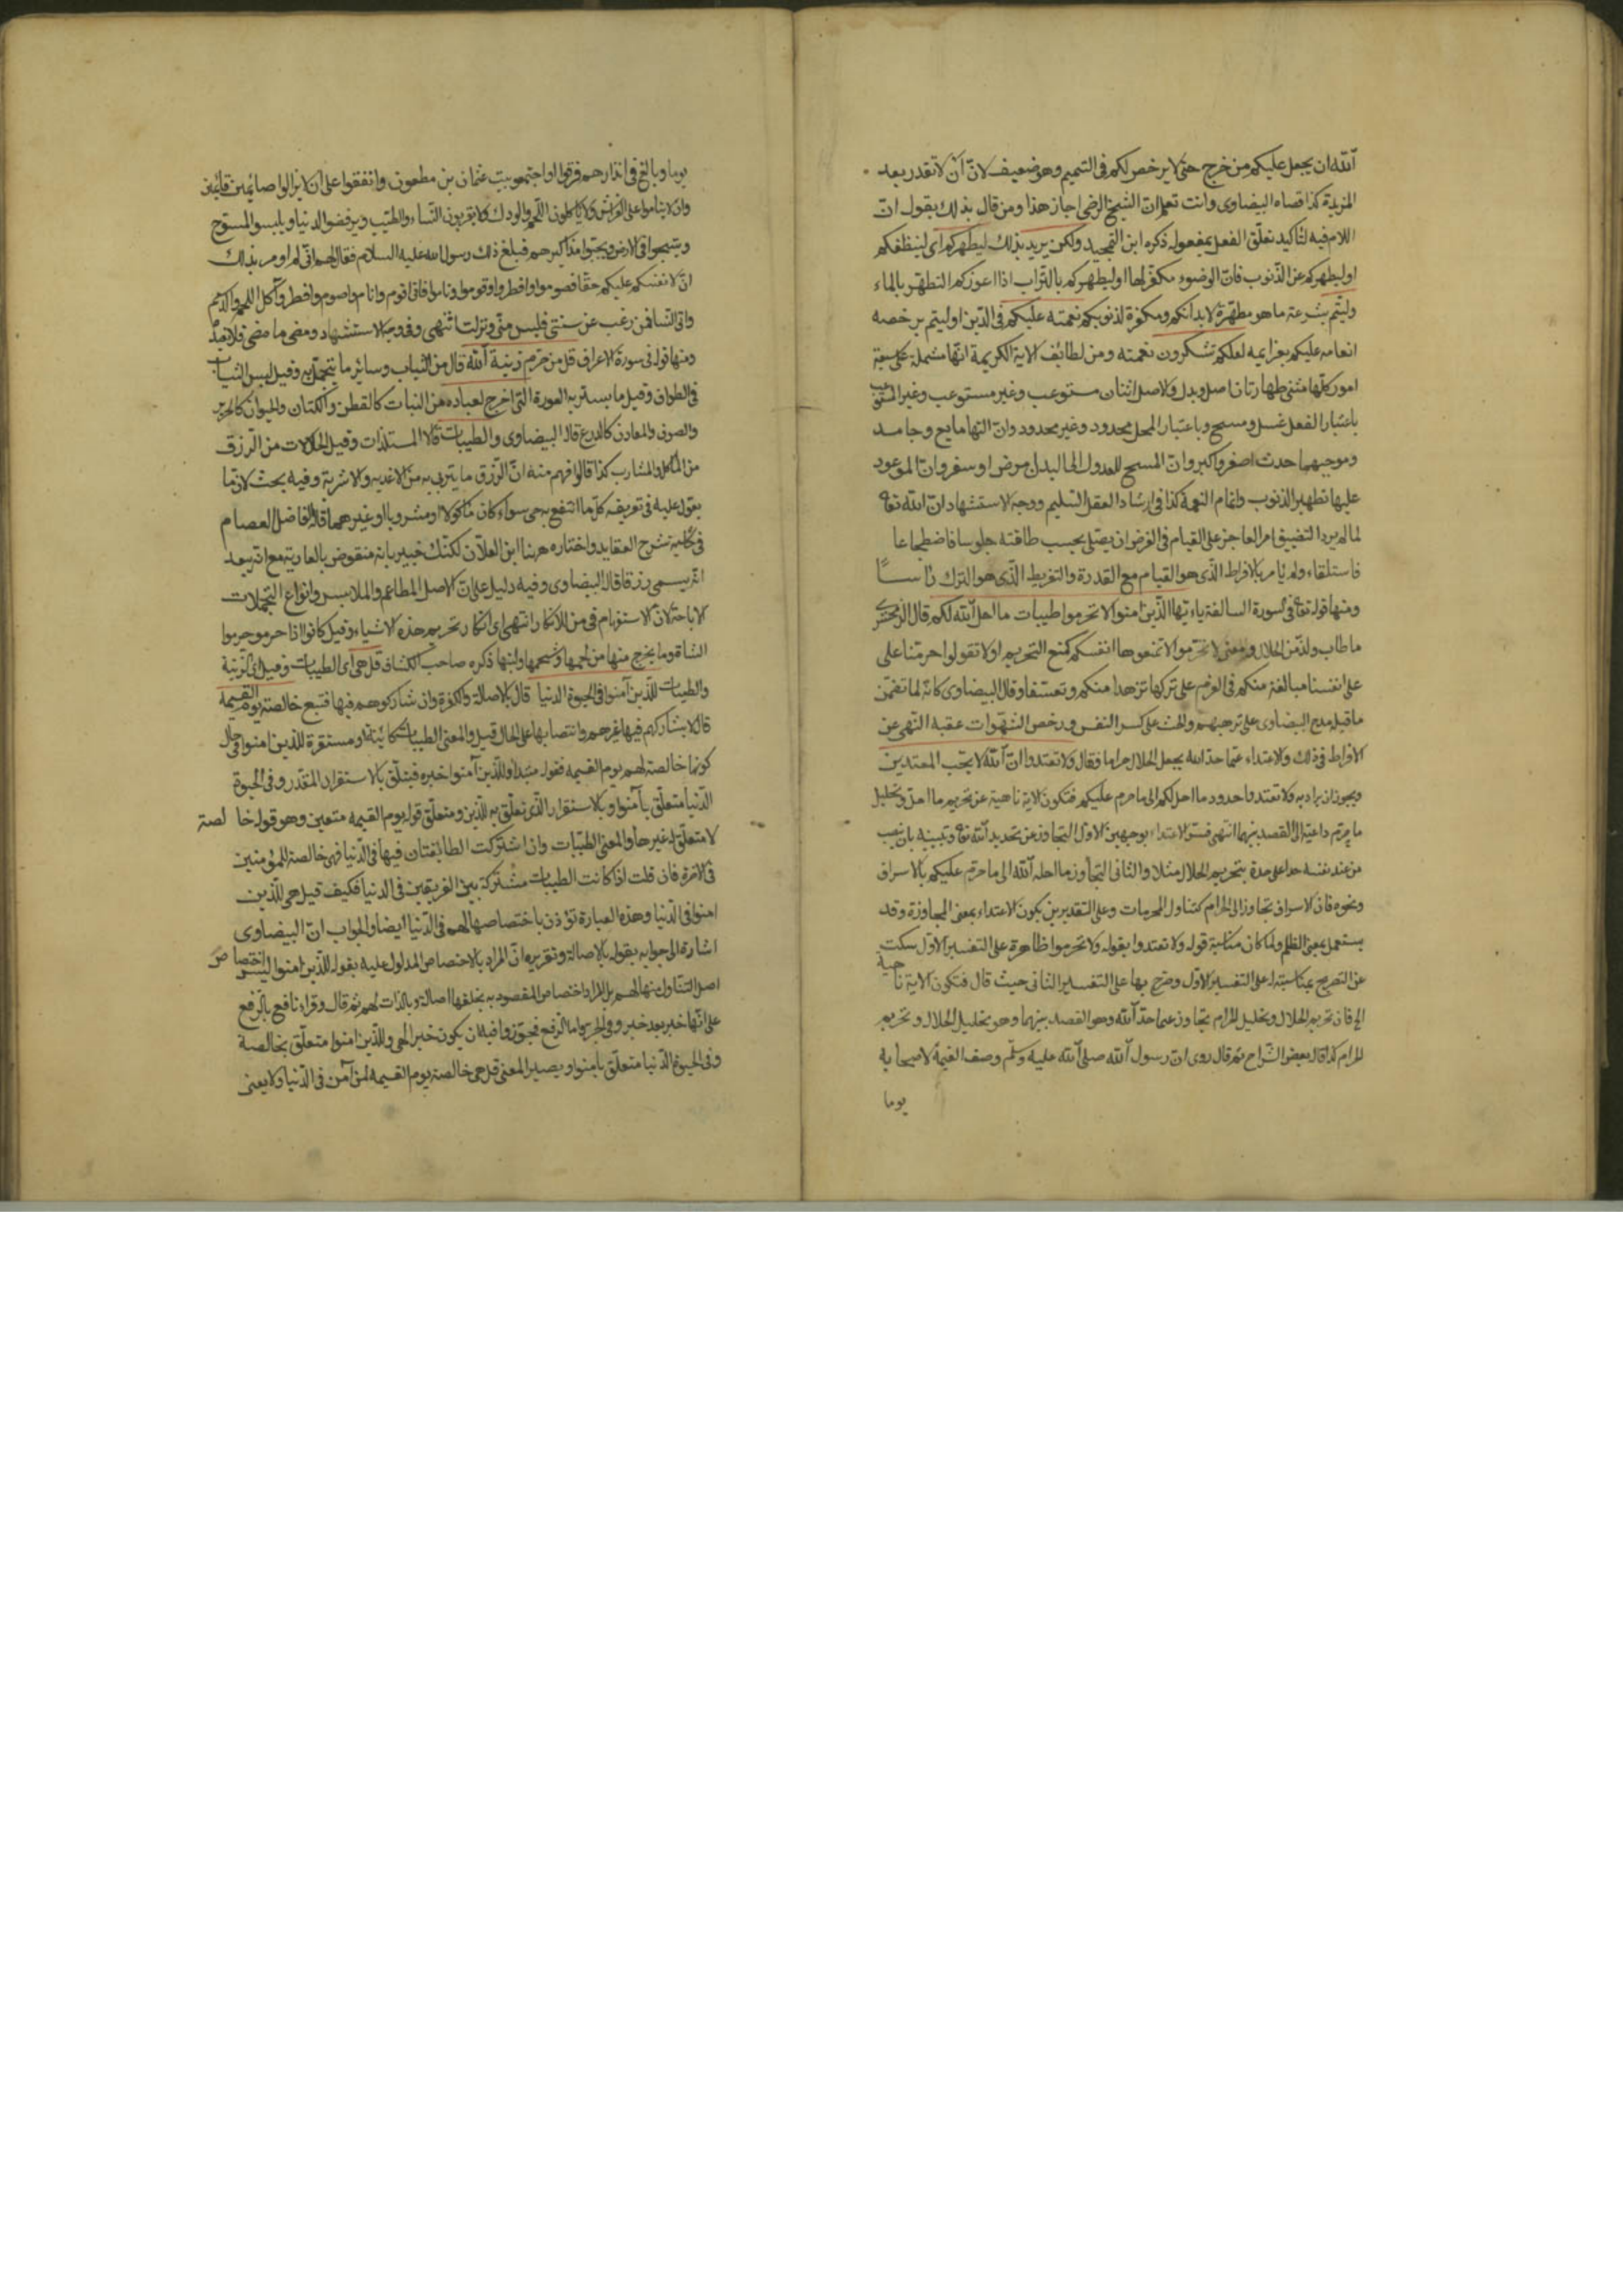 الله ان يجعل عليكم من حرج حتى لا يرخص لكم في التيمم وهو ضعيف لانّ ان لا تقدر بعد
المزيدة كذا قصاه البيضاوى وانت تعلم انّ الشيخ الرضى اجاز هذا ومن قال بذلك يقول انّ
اللام فيه لتاكيد تعلّق الفعل بمفعوله ذكره ابن التمجيد ولكن يريد بذلك ليطهركم اى لينظفكم
او ليطهركم عن الذنوب فانّ الوضوء مكفّر لها او ليطهركم بالتّراب اذا اعوزكم التطهّر بالماء
وليتّم بشرعه ما هو مطهّرة لابدانكم ومكفرة لذنوبكم نعمته عليكم فى الدّين او ليتم برخصه
انعامه عليكم بعزايمه لعلكم تشكرون نعمته ومن لطائف الاية الكريمة انّها مشملة على سبعة
امور كلّها مثنى طهارتان اصل وبدل والاصل اثنان مستوعب وغير مستوعب وغير المستوعب
باعتبار الفعل غسل ومسح وباعتبار المحل محدود وغير محدود وانّ التها مايع وجامد
وموجبهما حدث اصغر واكبر وانّ المسح للعدول الى البدل مرض او سفر وانّ الموعود
عليها تطهير الذنوب واتمام النعمة كذا فى ارشاد العقل السّليم ووجه الاستشهاد انّ الله تعا
لما لم يرد التضييق امر العاجز على القيام فى الفرض ان يصلى بحسب طاقته جلوسا فاضطجاعا
فاستلقاء ولم يامر بالافراط الّذى هو القيام مع القدرة والتفريط الّذى هو الترك راسًا
ومنها قوله تعا فى السورة السالفة ياءيّها الذّين امنوا لا تحرموا طيبات ما احل الله لكم قال الزمخشرى
ما طاب ولذّ من الحلال ومعنى لا تحرّموا لا تمنعوها انفسكم كمنع التحريم او لا تقولوا حرمنا على
على انفسنا مبالغة منكم فى العزم على تركها تزهدا منكم وتعسفا وقال البيضاوى كانّه لما تضمّن
ما قبله مدح البيضاوى على ترهبهم والحث على كسر النفس ورخص الشهوات عقبه النّهى عن
الافراط فى ذلك والاعتداء عمّا حدّ الله بجعل الحلال حراما فقال ولا تعتدوا انّ الله لا يحّب المعتدين
ويجوز ان يراد به ولا تعتدوا حدود ما احل لكم الى ما حرم عليكم فتكون الاية ناهية عن تحريم ما احل وتحليل
ما حرّم داعية الى القصد بينهما انتهى فسّر الاعتداء بوجهين الاوّل التجاوز عن تحديد الله تعا وتبيينه بان ينصب
من عند نفسه حدا على حدة بتحريم الحلال مثلا والثانى التجاوز ما احله الله الى ما حرّم عليكم بالاسراف
ونحوه فان الاسراف تجاوز الى الحرام كتناول المحرمات وعلى التقديرين يكون الاعتداء بمعنى المجاوزة وقد
يستعمل بمعنى الظلم ولما كان مناسبة قوله ولا تعتدوا بقوله ولا تحرموا ظاهرة على التفسير الاوّل سكت
عن التصريح بمناسبته على التفسير الاوّل وصرّح بها على التفسير الثانى حيث قال فتكون الاية ناهية
الى فان تحريم الحلال وتحليل الحرام تجاوز عما حدّ الله وهو القصد بينهما وهو تحليل الحلال وتحريم
الحرام كذا قال بعض الشّراح ثم قال روى انّ رسول الله صلى الله عليه وسلّم وصف القيمة لاصحابه
يوما
يوما وبالغ فى انذارهم فرقوا واجتمعو بيت عثمان بن مظعون واتفقوا على ان لا يزالوا صائمين قائمين
وان لا يناموا على الفرش ولا ياكلون اللّحم والودك ولا يقربون النّساء والطيّب ويرفضوا الدنيا ويلبسو المسوح
ويسيحوا فى الارض ويجبّوا مذاكيرهم فبلغ ذلك رسول الله عليه السلام فقال لهم انّى لم اومر بذلك
انّ لانفسكم عليكم حقّا فصوموا وافطروا وقوموا وناموا فانى اقوم وانام واصوم وافطر وآكل اللحم والدّسم
واتى النسا فمن رغب عن سنتى فليس منّى ونزلت انتهى وفى وجه الاستشهاد ومضى ما مضى فلا نعد
ومنها قوله فى سورة الاعراف قل من حرّم زينة الله قال من الثياب وسائر ما يتجمّل به وقيل لبس الثياب
فى الطواف وقيل ما يستر به العورة التى اخرج لعباده من النبات كالقطن والكتان والحيوان كالحرير
والصوف والمعادن كالدرع قاله البيضاوى والطيبات قالا المستلذات وقيل الحلالات من الرّزق
من المآكل والمشارب كذا قالوا فهم منه انّ الرّزق ما يتربى به من الاغذيه والاشربة وفيه بحث لانّ ما
يعول عليه فى تعريفه كل ما انتفع به حى سواء كان ماكولا او مشروبا او غيرهما قاله الفاضل العصام
فى حاشية شرح العقايد واختاره ههنا ابن العلّان لكنّك خبير بانه منقوض بالعارية مع انّه يبعد
انّه يسمى رزقا قال البيضاوى وفيه دليل على انّ الاصل المطاعم والملابس وانواع التجملات
الاباحة لانّ الاستفهام فى من للانكار انتهى اى انكار تحريم هذه الاشياء وقيل كانوا اذا احرموا حرموا
الشاة وما يخرج منها من لحمها وشحمها ولبنها ذكره صاحب الكشاف قل هى اى الطيبات وقيل اى الزينة
والطيبات للّذين آمنوا فى الحيوة الدنيا قال بالاصالة والكفرة وان شاركوهم فيها فتبع خالصة يوم القيمة
قال لا يشاركهم فيها غيرهم وانتصابها على الحال قيل والمعنى الطيبات كائنة او مستقرة للذين امنوا فى حال
كونها خالصة لهم يوم القيمه فقوله مبتداء وللذين آمنوا خبره فيتعلّق بالاستقرار المقدّر وفى الحيوة
الدّنيا متعلّق بآمنوا وبالاستقرار الذّى تعلّق به للّذين ومتعلّق قوله يوم القيمه متعين وهو قوله خالصة
لا متعلّق له غيرها والمعنى الطيّبات وان اشتركت الطائفتان فيها فى الدّنيا فهى خالصة للمؤمنين
فى الاخرة فان قلت اذا كانت الطيبات مشتركة بين الفريقين فى الدنيا فكيف قيل هى للّذين
امنوا فى الدّنيا وهذه العبارة تؤذن باختصاصها لهم فى الدّنيا ايضا والجواب انّ البيضاوى
اشار الى جوابه بقوله بالاصالة وتقريره انّ المراد بالاختصاص المدلول عليه بقوله للّذين امنوا ليس اختصاص
اصل التناول منها لهم بل المراد اختصاص المقصود به بخلقها اصالة وبالذات لهم ثم قال وقراء نافع بالرّفع
على انّها خبر بعد خبر وفى الحرير اما الرّفع فجوّزوا فيه ان يكون خبر الهى وللّذين امنوا متعلّق بخالصة
وفى الحيوة الدّنيا متعلّق بآمنوا ويصير المعنى قل هى خالصة يوم القيمه لمن آمن فى الدّنيا ولا يعنى